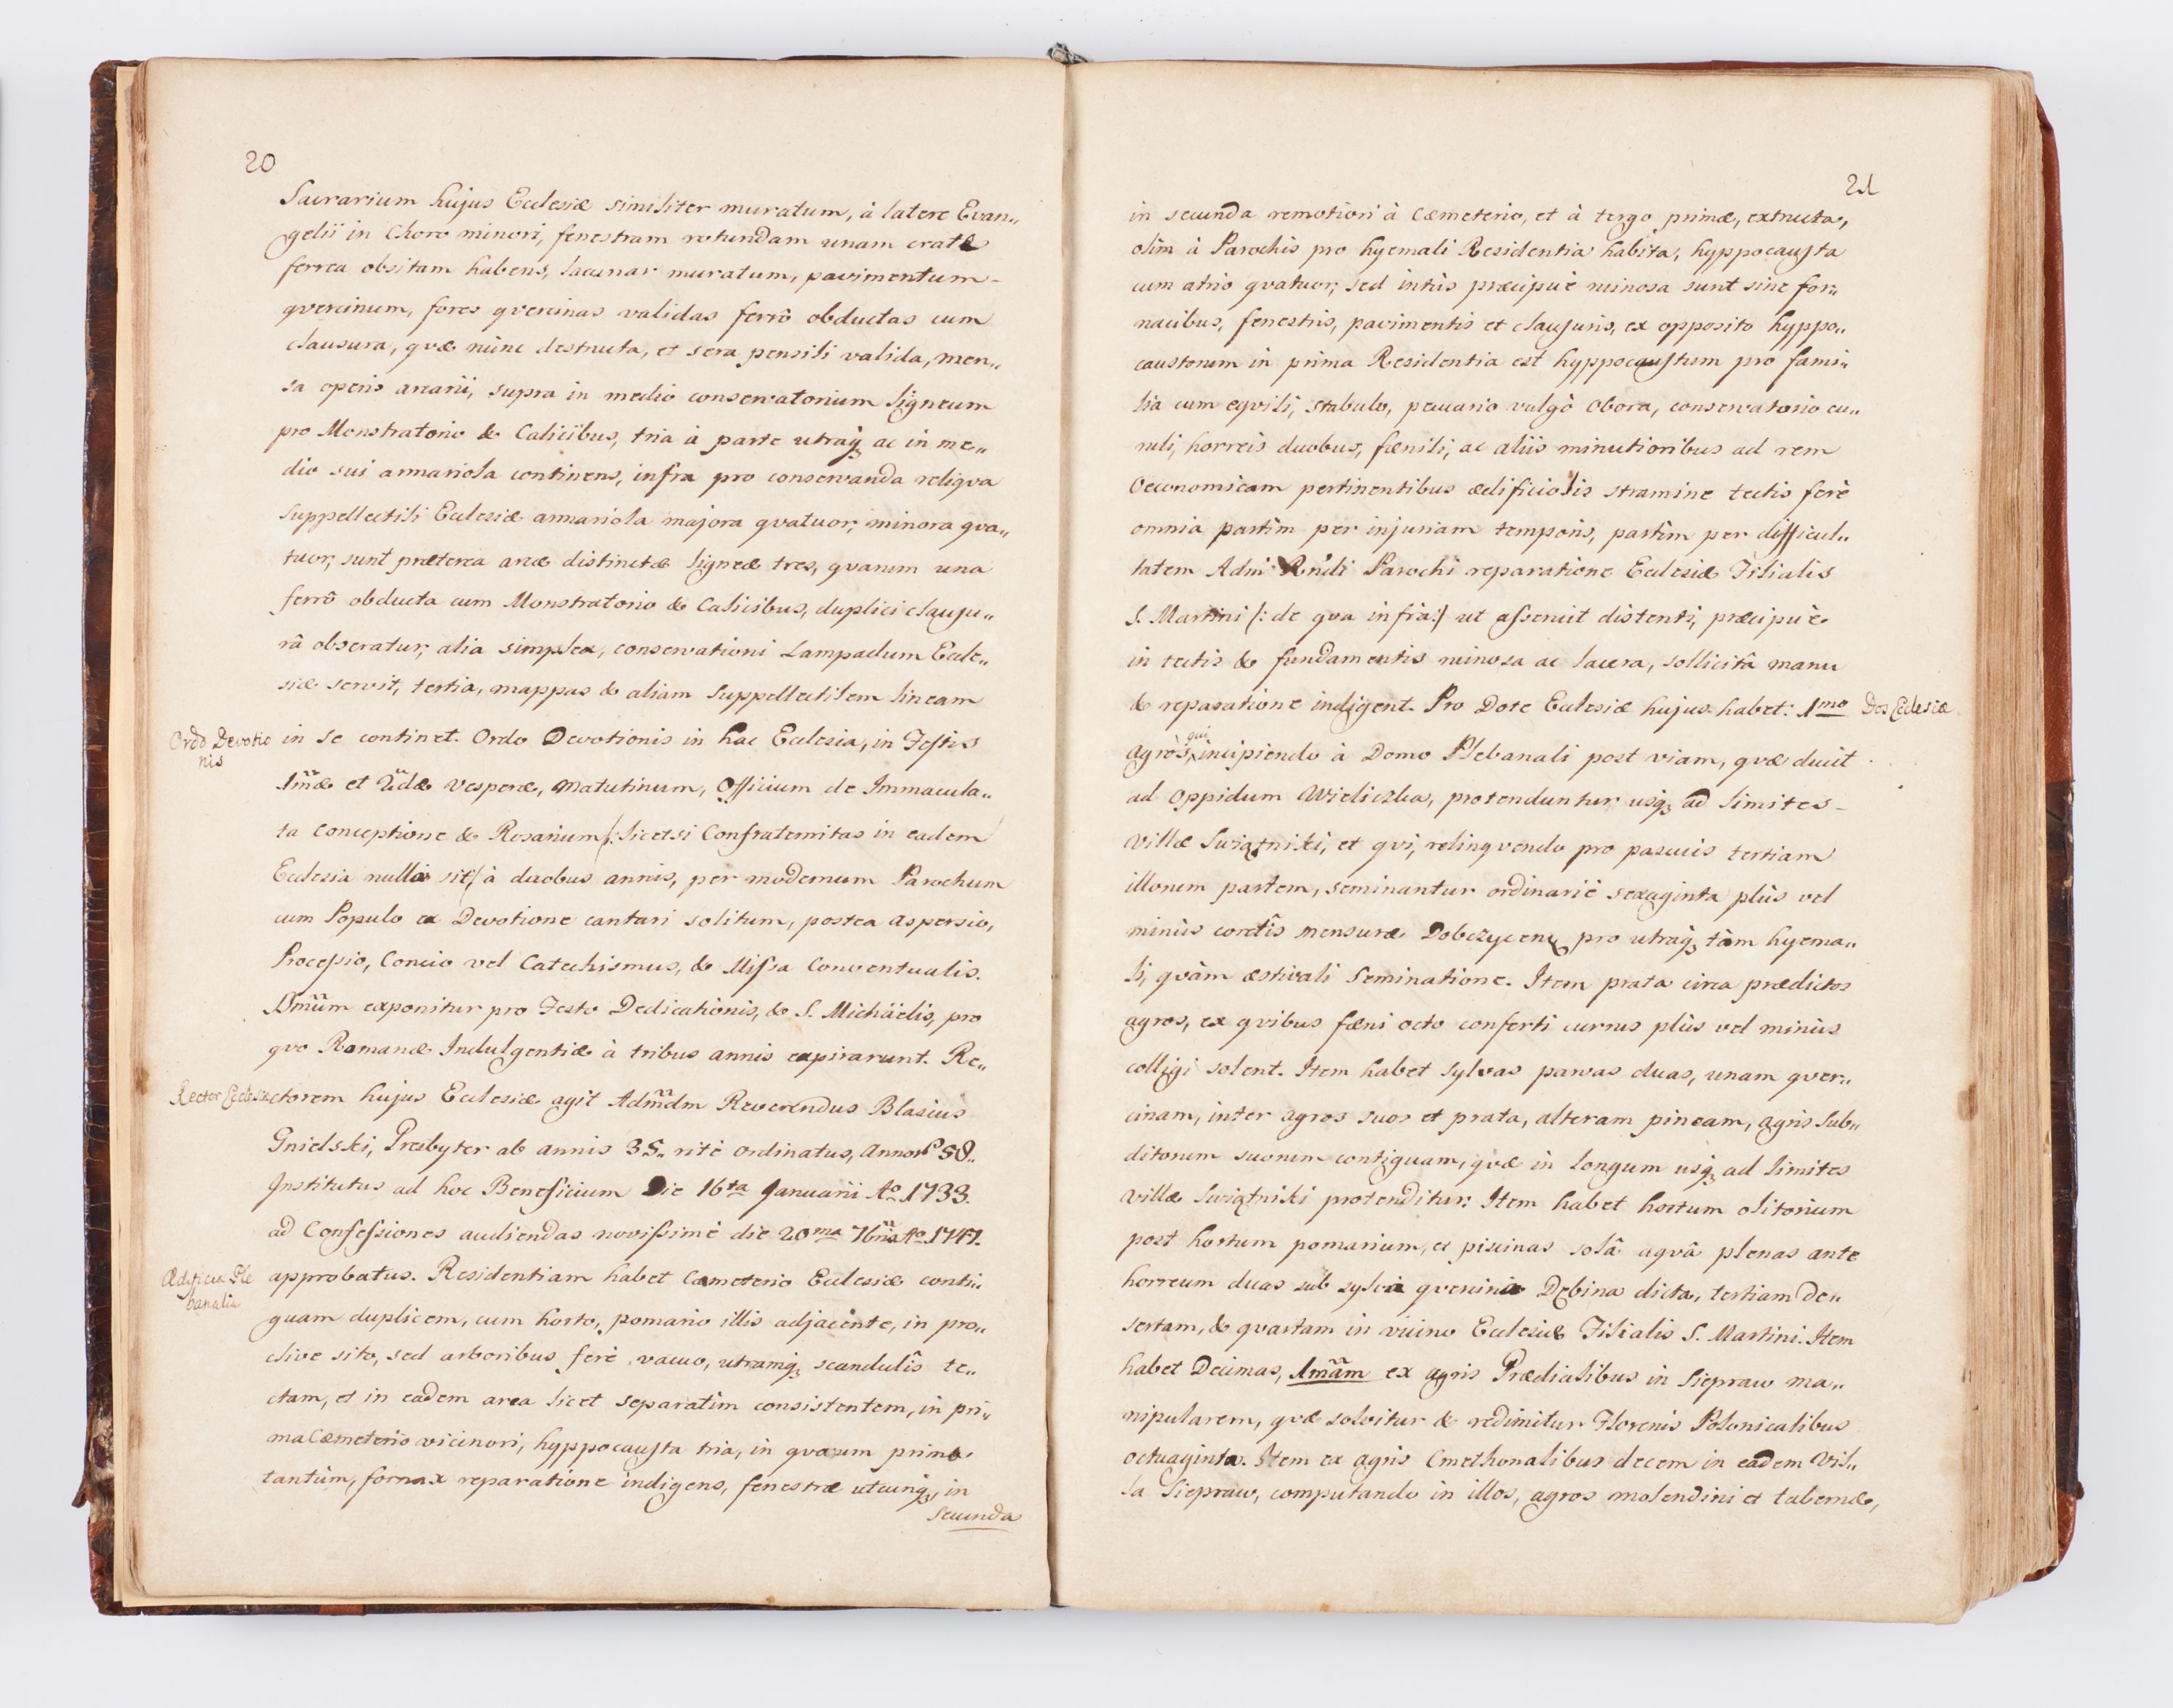 20
Sacrarium hujus Ecclesiæ similiter muratum, à latere Evan„
gelii in Choro minori, fenestram rotundam unam crate
ferrea obsitam habens, lacunar muratum, pavimentum
qvercinum, fores qvercinas validas ferrô obductas cum
clausura, qvæ nùnc destructa, et sera pensili valida, men„
sa operis arcarii, supra in medio conservatorium ligneum
pro Monstratorio & Calicibus, tria à parte utraqꝫ ac in me„
dio sui armariola continens, infra pro conservanda reliqva
suppellectili Ecclesiæ armariola majora qvatuor, minora qva„
tuor, sunt præterea arcæ distinctæ ligneæ tres, qvarum una
ferrô obducta cum Monstratorio & Calicibus, duplici clausu„
râ obseratur, alia simplex, conservationi Lampadum Eccle„
siæ servit, tertia, mappas & aliam Suppellectilem lineam
Ordo Devotio
nis
in se continet. Ordo Devotionis in hac Ecclesia, in Festis
1mæ et 2dæ Vesperæ, Matutinum, Officium de Immacula„
ta Conceptione & Rosarium /: licet si Confraternitas in eadem
Ecclesia nulla sit :/ à duobus annis, per modernum Parochum
cum Populo ex Devotione cantari solitum, postea aspersio,
Processio, Concio vel Catechismus, & Missa Conventualis.
Smũm exponitur pro Festo Dedicationis, & S. Michäelis, pro
qvo Romanæ Indulgentiæ à tribus annis expirarunt. Re„
Rector Ecclesiæ
ctorem hujus Ecclesiæ agit Admdm Reverendus Blasius
Gnielski, Presbyter ab annis 35„ ritè ordinatus, annor 58„
Institutus ad hoc Beneficium Die 16ta Januarii Ao 1733.
ad Confessiones audiendas novissimè die 20ma 7bris Ao 1747.
Ædificia Ple
banalia
approbatus. Residentiam habet Cæmeterio Ecclesiæ conti„
guam duplicem, cum horto, pomario illis adjacente, in pro„
clive sito, sed arboribus ferè vacuo, utramqꝫ scandulîs te„
ctam, et in eadem area licet separatim consistentem, in pri„
ma Cæmeterio vicinori, hyppocausta tria, in qvorum primo
tantùm, fornax reparatione indigens, fenestræ utcunqꝫ, in
secunda
21
in secunda remotiori à Cæmeterio, et à tergo primæ, extructa,
olim à Parochis pro hyemali Residentia habita, hyppocausta
cum atrio qvatuor, sed intùs præcipuè ruinosa sunt sine for„
nacibus, fenestris, pavimentis et clausuris, ex opposito hyppo„
caustorum in prima Residentia est hyppocaustum pro fami„
lia cum eqvili, stabulo, pecuario vulgò Obora, conservatorio cu„
rruli, horreis duobus, fænili, ac aliis minutioribus ad rem
Oeconomicam pertinentibus ædificiolis stramine tectis ferè
omnia partim per injuriam temporis, partim per difficul„
tatem Adm Rndi Parochi reparatione Ecclesiæ Filialis
S. Martini /: de qva infra :/ ut asseruit distenti, præcipuè
in tectis & fundamentis ruinosa ac lacera, sollicitâ manu
& reparatione indigent. Pro Dote Ecclesiæ hujus habet: 1mo
Dos Ecclesiæ
agros, qui incipiendo à Domo Plebanali post viam, qvæ ducit
ad Oppidum Wieliczka, protenduntur usqꝫ ad limites
Villæ Swiątniki, et qvi, relinqvendo pro pascuis tertiam
illorum partem, seminantur ordinariè sexaginta plùs vel
minùs coretîs mensuræ Dobczycens pro utraqꝫ tàm hyema„
li, qvàm æstivali Seminatione. Item prata circa prædictos
agros, ex qvibus fæni octo conferti currus plùs vel minùs
colligi solent. Item habet sylvas parvas duas, unam qver„
cinam, inter agros suos et prata, alteram pineam, agris sub„
ditorum suorum contiguam, qvæ in longum usqꝫ ad limites
villæ Swiątniki protenditur: Item habet hortum olitorium
post hortum pomarium, et piscinas solâ aqvâ plenas ante
horreum duas sub sylva qvercina Dębina dicta, tertiam de„
sertam, & qvartam in vicino Ecclesiæ Filialis S. Martini. Item
habet Decimas, 1mam ex agris Prædialibus in Siepraw ma„
nipularem, qvæ solvitur & redimitur Florenis Polonicalibus
octuaginta. Item ex agris Cmethonalibus decem in eadem Vil„
la Siepraw, computando in illos, agros molendini et tabernæ,